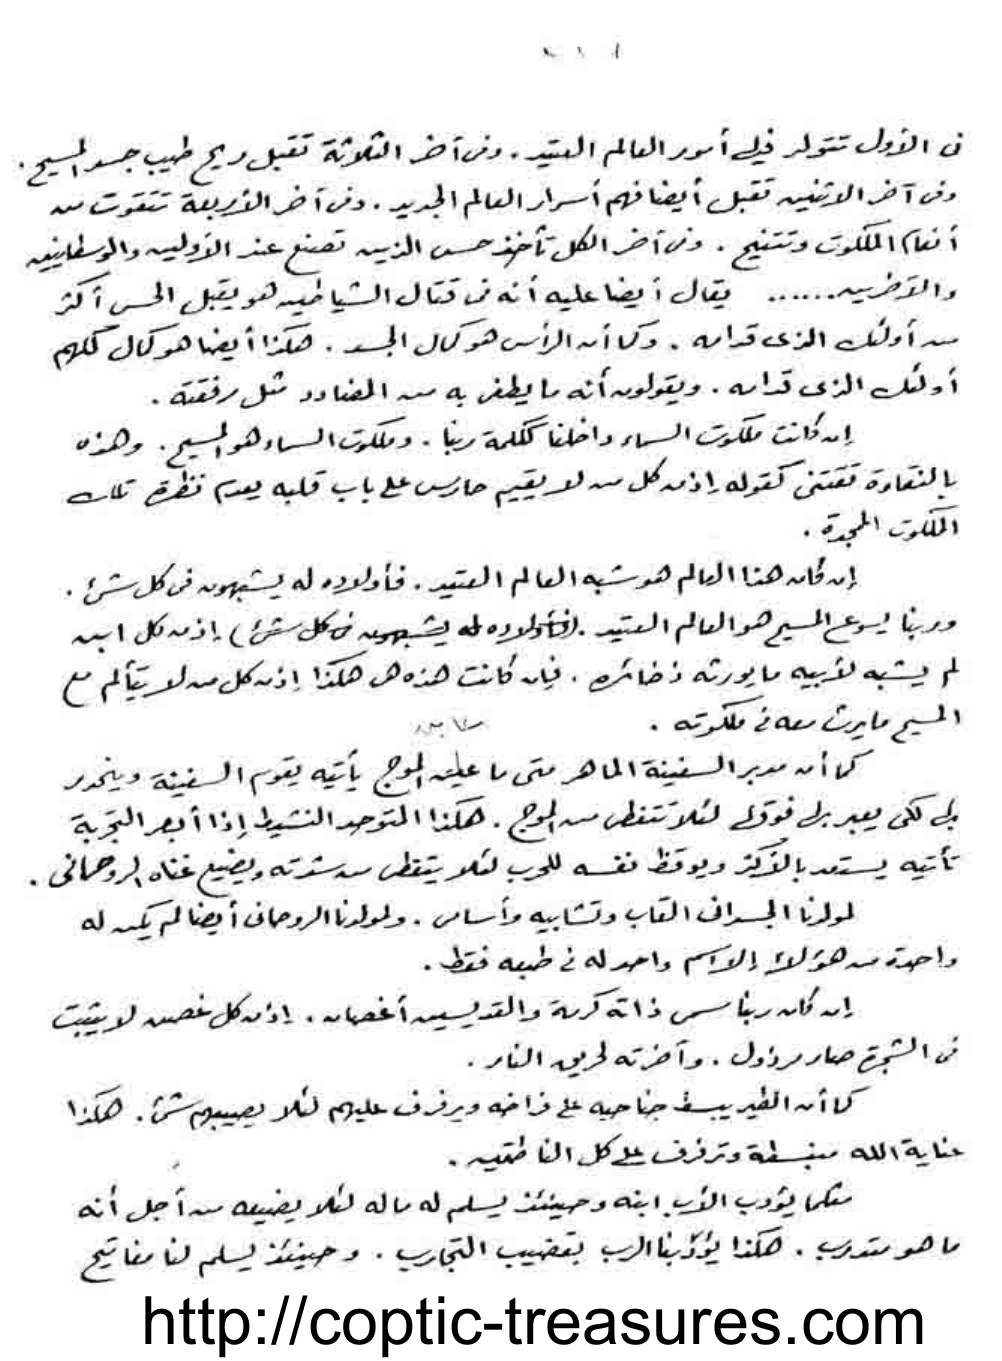 فى الأول تتولد فيك أمور العالم العتيد . وفى آخر الثلاثة تقبل ريح طيب جسد المسيح .
وفى آخر الاثنين تقبل أيضا فهم أسرار العالم الجديد . وفى آخر الأربعة تتقوت من
أنعام الملكوت وتتنيح . وفى آخر الكل تأخذ حس الذين تصنع عند الأولين والوسطانيين
والآخرين ...... يقال أيضا عليه أنه فى قتال الشياطين هو يقبل الحس أكثر
من أولئك الذى قدامه . وكما أن الرأس هو كمال الجسد . هكذا أيضا هو كمال كلهم
أولئك الذى قدامه . ويقولون أنه ما يظفر به من المضادد مثل رفقته .
إن كانت ملكوت السماء داخلنا ككلمة ربنا . وملكوت السماء هو المسيح . وهذه
بالنقاوة تقتنى كقوله إذن كل من لا يقيم حارس على باب قلبه يعدم نظرة تلك
الملكوت الممجدة .
إن كان هذا العالم هو شبه العالم العتيد . فأولاده له يشبهون فى كل شئ .
وربنا يسوع المسيح هو العالم العتيد . (فأولاده له يشبهون فى كل شئ) إذن كل ابن
لم يشبه لأبيه ما يورثه ذخائره . فإن كانت هذه هى هكذا إذن كل من لا يتألم مع
المسيح ما يرث معه فى ملكوته .
كما أن مدبر السفينة الماهر متى ما عاين الموج يأتيه يقوم السفينة وينحدر
بها لكى يعبر بها فوقه لئلا تتغطى من الموج . هكذا المتوحد النشيط إذا أبصر التجربة
تأتيه يستعد بالأكثر ويوقظ نفسه للحرب لئلا يتغطى من شدته ويضيع غناه الروحانى .
لمولدنا الجسدانى القاب وتشابيه وأساس . ولمولدنا الروحانى أيضا لم يكن له
واحدة من هؤلاء إلا اسم واحد له فى طبعه فقط .
إن كان ربنا سمى ذاته كرمة والقديسين أغصان . إذن كل غصن لا يثبت
فى الشجرة صار مرذول . وآخرته لحريق النار .
كما أن الطير يبسط جناحيه على فراخه ويرفرف عليهم لئلا يصيبهم شئ . هكذا
عناية الله منبسطة وترفرف على كل الناطقين .
مثلما يؤدب الأب ابنه وحينئذ يسلم له ماله لئلا يضيعه من أجل أنه
ما هو متدرب . هكذا يؤدبنا الرب بقضيب التجارب . وحينئذ يسلم لنا مفاتيح
http://coptic-treasures.com